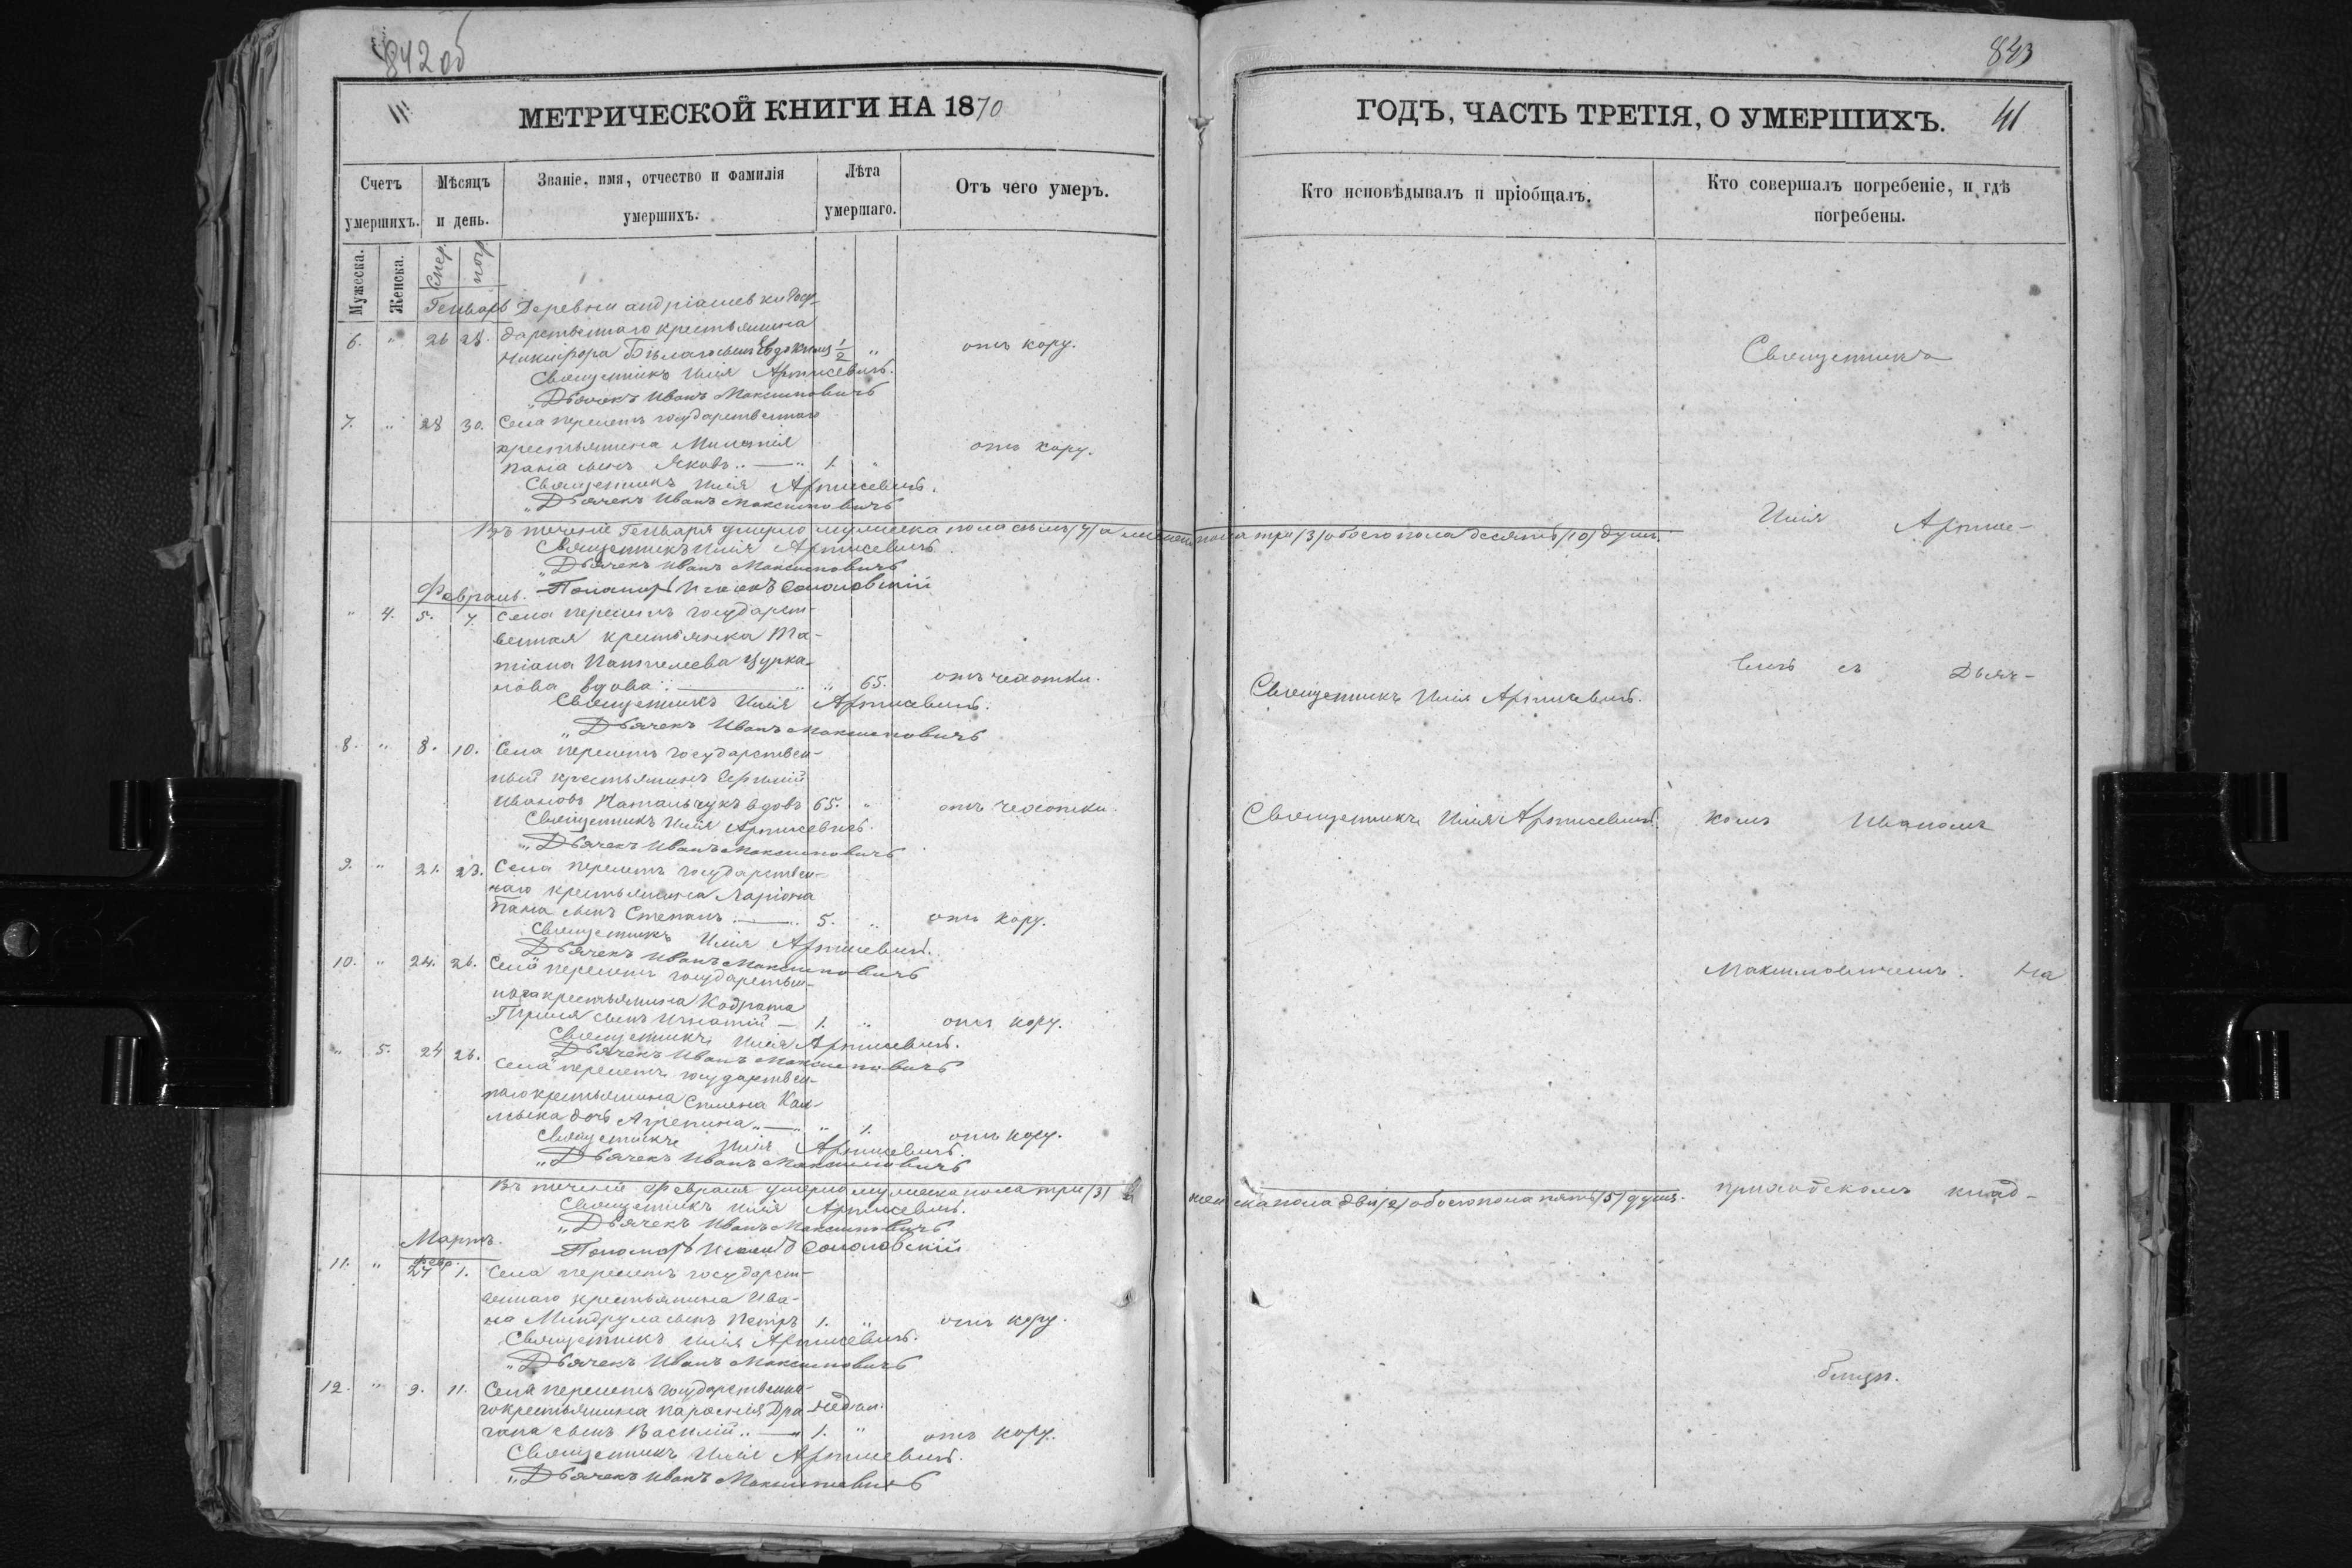 842 об
МЕТРИЧЕСКОЙ КНИГИ НА 1870
Счетъ умершихъ.
Мѣсяцъ и день.
Званіе, имя, отчество и фамилія умершихъ.
Лѣта умершаго.
Отъ чего умеръ.
Мужеска.
Женска.
Смер.
погр
Генварь Деревни андріашевки Госу-
6. " 26 28. дарственнаго крестьянина
Никифора Бѣлаго сынъ Евдокимъ 1/2 " отъ кору.
Священникъ Илія Артисевичъ.
Дьячекъ Иванъ Максимовичъ
7. " 28 30. Села перелетъ государственнаго
крестьянина Милетія
Пана сынъ Яковъ 1. " отъ кору.
Священникъ Илія Артисевичъ.
Дьячекъ Иванъ Максимовичъ
Въ теченіе Генваря умерло мужеска пола семь (7) а женска
Священникъ Илія Артисевичъ.
Дьячекъ Иванъ Максимовичъ
Февраль. Пономарь Соколовскій
" 4. 5. 7. Села перелетъ государст-
венная крестьянка Та-
тіана Пантелеева Цурка-
нова вдова " 65. отъ чахотки.
Священникъ Илія Артисевичъ.
Дьячекъ Иванъ Максимовичъ
8. " 8. 10. Села перелетъ государствен-
ный крестьянинъ Сергій
Ивановъ Натальчукъ вдовъ 65. " отъ чахотки.
Священникъ Илія Артисевичъ.
Дьячекъ Иванъ Максимовичъ
9. " 21. 23. Села перелетъ государствен-
наго крестьянина Ларіона
Пана сынъ Степанъ 5. " отъ кору.
Священникъ Илія Артисевичъ.
Дьячекъ Иванъ Максимовичъ
10. " 24. 26. Села перелетъ государствен-
наго крестьянина Кодрата
сынъ Игнатій 1. " отъ кору.
Священникъ Илія Артисевичъ.
Дьячекъ Иванъ Максимовичъ
" 5. 24 26. Села перелетъ государствен-
наго крестьянина Семена Кал-
мыка дочь Агрепина " 1. отъ кору.
Священникъ Илія Артисевичъ.
Дьячекъ Иванъ Максимовичъ
Въ теченіе Февраля умерло мужеска пола три (3)
Священникъ Илія Артисевичъ.
Дьячекъ Иванъ Максимовичъ
Мартъ. Пономарь Соколовскій
11. " февр. 27 1. Села перелетъ государст-
веннаго крестьянина Ива-
на Миндрула сынъ Петръ 1. " отъ кору.
Священникъ Илія Артисевичъ.
Дьячекъ Иванъ Максимовичъ
12. " 9. 11. Села перелетъ государственна-
го крестьянина Дра-
гана сынъ Василій 1. " отъ кору.
Священникъ Илія Артисевичъ.
Дьячекъ Иванъ Максимовичъ
843
ГОДЪ, ЧАСТЬ ТРЕТІЯ, О УМЕРШИХЪ. 41
Кто исповѣдывалъ и пріобщалъ.
Кто совершалъ погребеніе, и гдѣ погребены.
Священникъ
пола три (3) обоего пола десять (10) душъ.
Илія Артисе-
вичъ съ Дьяч-
Священникъ Илія Артисевичъ.
Священникъ Илія Артисевичъ.
комъ Иваномъ
Максимовичемъ. На
женска пола двѣ (2) обоего пола пять (5) душъ.
приходскомъ клад-
бищѣ.